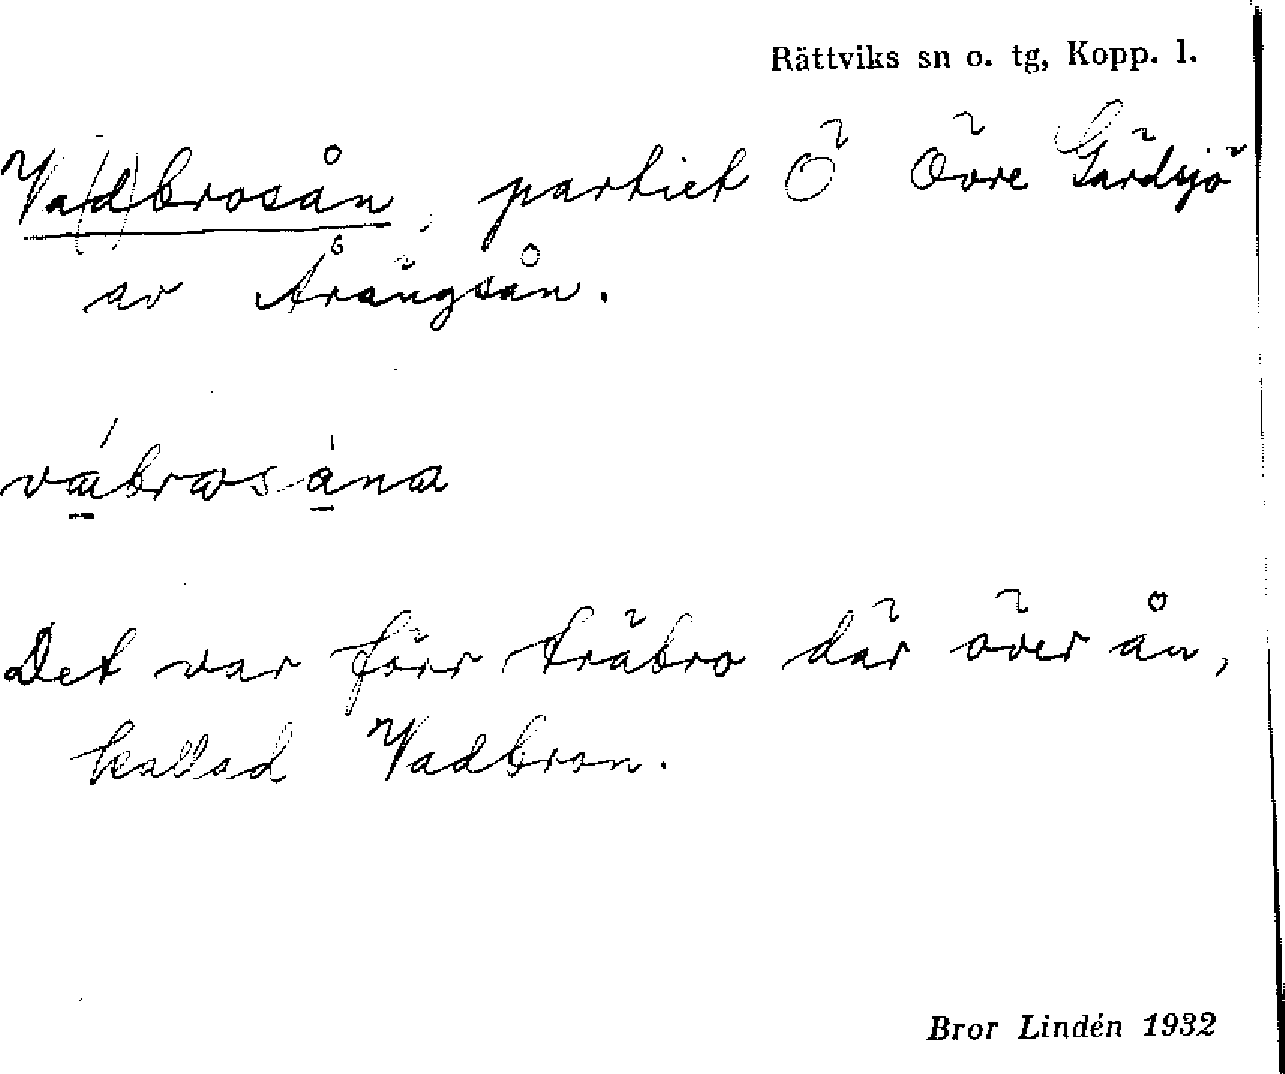 Rättviks sn o. tg, Kopp. l.
Va(d)brosån, partiet Ö Övre Gärdsjö
av Årängsån.
vábrosȧna
Det var förr träbro där över ån,
kallad Vadbron.
Bror Lindén 1932